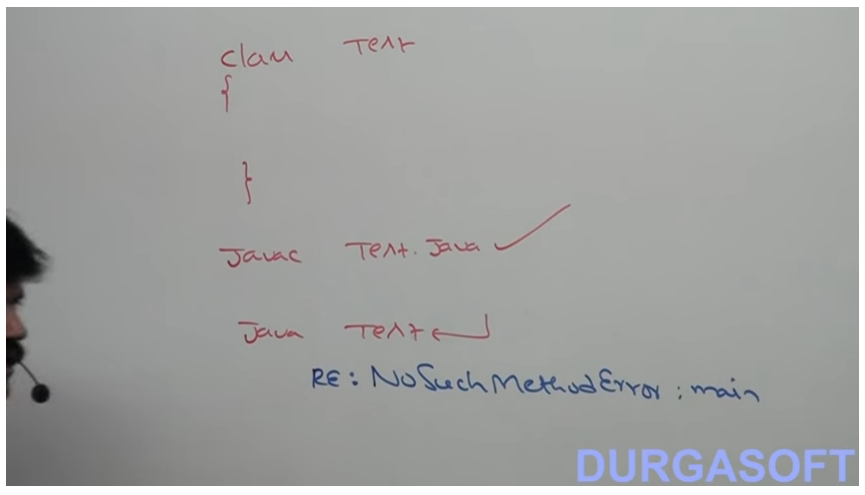 class Test
{
}
Javac Test.Java ✓
Java Test ↵
RE: NoSuchMethodError: main
DURGASOFT